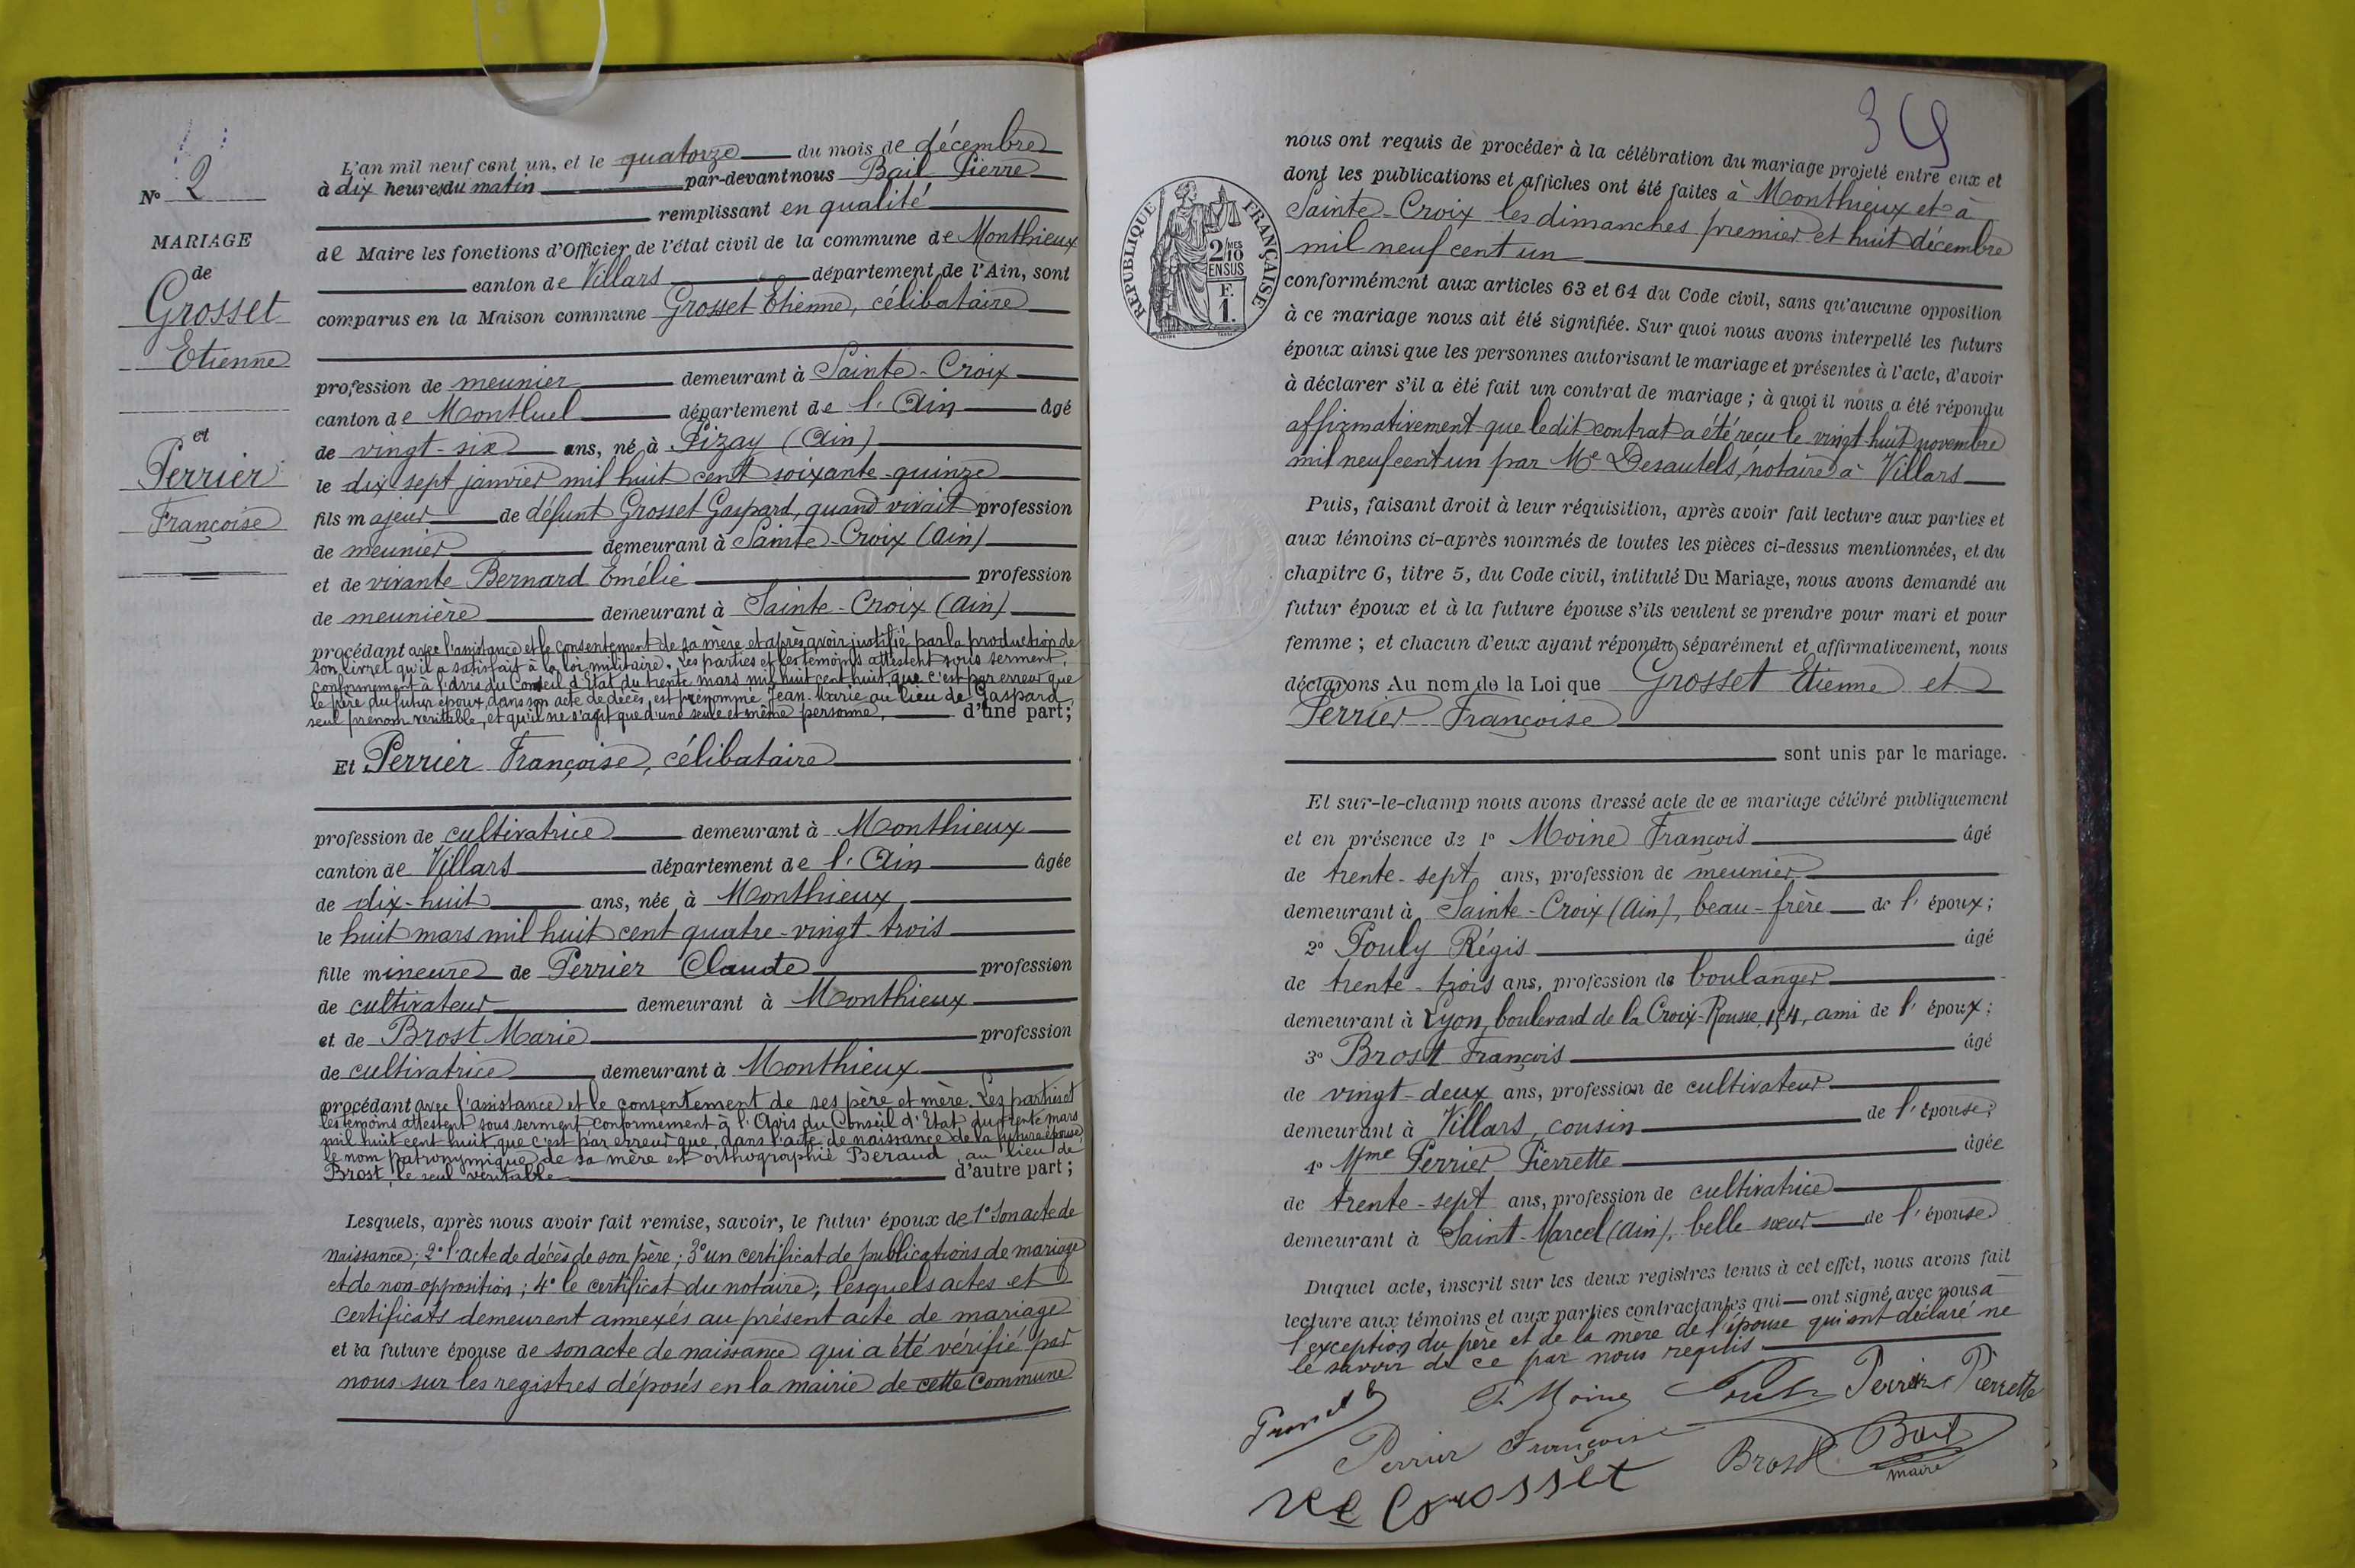 N° 2
MARIAGE
de
Grosset
Etienne
et
Perrier
Françoise
L'an mil neuf cent un, et le quatorze du mois de décembre
à dix heures du matin par-devant nous Bail Pierre
remplissant en qualité
de Maire les fonctions d'Officier de l'état civil de la commune de Monthieux
canton de Villars département de l'Ain, sont
comparus en la Maison commune Grosset Etienne, célibataire
profession de meunier demeurant à Sainte-Croix
canton de Montluel département de l'Ain âgé
de vingt-six ans, né à Pizay (Ain)
le dix sept janvier mil huit cent soixante-quinze
fils majeur de défunt Grosset Gaspard, quand vivait profession
de meunier demeurant à Sainte-Croix (Ain)
et de vivante Bernard Emélie profession
de meunière demeurant à Sainte-Croix (Ain)
procédant avec l'assistance et le consentement de sa mère et après avoir justifié par la production de
son livret qu'il a satisfait à la loi militaire. Les parties et les témoins attestent sous serment,
conformément à l'avis du Conseil d'Etat du trente mars mil huit cent huit, que c'est par erreur que
le père du futur époux, dans son acte de décès, est prénommé Jean-Marie au lieu de Gaspard
seul prénom véritable, et qu'il ne s'agit que d'une seule et même personne, d'une part;
Et Perrier Françoise, célibataire
profession de cultivatrice demeurant à Monthieux
canton de Villars département de l'Ain âgée
de dix-huit ans, née à Monthieux
le huit mars mil huit cent quatre-vingt-trois
fille mineure de Perrier Claude profession
de cultivateur demeurant à Monthieux
et de Brost Marie profession
de cultivatrice demeurant à Monthieux
procédant avec l'assistance et le consentement de ses père et mère. Les parties et
les témoins attestent sous serment conformément à l'Avis du Conseil d'Etat du trente mars
mil huit cent huit, que c'est par erreur que, dans l'acte de naissance de la future épouse,
le nom patronymique de sa mère est orthographié Beraud au lieu de
Brost, le seul véritable d'autre part;
Lesquels, après nous avoir fait remise, savoir, le futur époux de 1° Son acte de
naissance; 2° l'acte de décès de son père; 3° un certificat de publications de mariage
et de non-opposition; 4° le certificat du notaire; lesquels actes et
certificats demeurent annexés au présent acte de mariage
et la future épouse de son acte de naissance qui a été vérifié par
nous sur les registres déposés en la mairie de cette Commune
39
RÉPUBLIQUE FRANÇAISE
2/10 MES
EN SUS
F.
1.
nous ont requis de procéder à la célébration du mariage projeté entre eux et
dont les publications et affiches ont été faites à Monthieux et à
Sainte-Croix les dimanches premier et huit décembre
mil neuf cent un
conformément aux articles 63 et 64 du Code civil, sans qu'aucune opposition
à ce mariage nous ait été signifiée. Sur quoi nous avons interpellé les futurs
époux ainsi que les personnes autorisant le mariage et présentes à l'acte, d'avoir
à déclarer s'il a été fait un contrat de mariage; à quoi il nous a été répondu
affirmativement que ledit contrat a été reçu le vingt-huit novembre
mil neuf cent un par Me Desautels, notaire à Villars
Puis, faisant droit à leur réquisition, après avoir fait lecture aux parties et
aux témoins ci-après nommés de toutes les pièces ci-dessus mentionnées, et du
chapitre 6, titre 5, du Code civil, intitulé Du Mariage, nous avons demandé au
futur époux et à la future épouse s'ils veulent se prendre pour mari et pour
femme; et chacun d'eux ayant répondu séparément et affirmativement, nous
déclarons Au nom de la Loi que Grosset Etienne et
Perrier Françoise
sont unis par le mariage.
Et sur-le-champ nous avons dressé acte de ce mariage célébré publiquement
et en présence de 1° Moine François âgé
de trente-sept ans, profession de meunier
demeurant à Sainte-Croix (Ain), beau-frère de l'époux;
2° Pouly Régis âgé
de trente-trois ans, profession de boulanger
demeurant à Lyon, boulevard de la Croix-Rousse, 154, ami de l'époux;
3° Brost François âgé
de vingt-deux ans, profession de cultivateur
demeurant à Villars, cousin de l'épouse;
4° Mme Perrier Pierrette âgée
de trente-sept ans, profession de cultivatrice
demeurant à Saint-Marcel (Ain), belle sœur de l'épouse
Duquel acte, inscrit sur les deux registres tenus à cet effet, nous avons fait
lecture aux témoins et aux parties contractantes qui ont signé avec nous à
l'exception du père et de la mère de l'épouse qui ont déclaré ne
le savoir de ce par nous requis
Grosset E F. Moine Pouly Perrier Pierrette
Perrier Françoise Brost Bail
maire
Ve Grosset